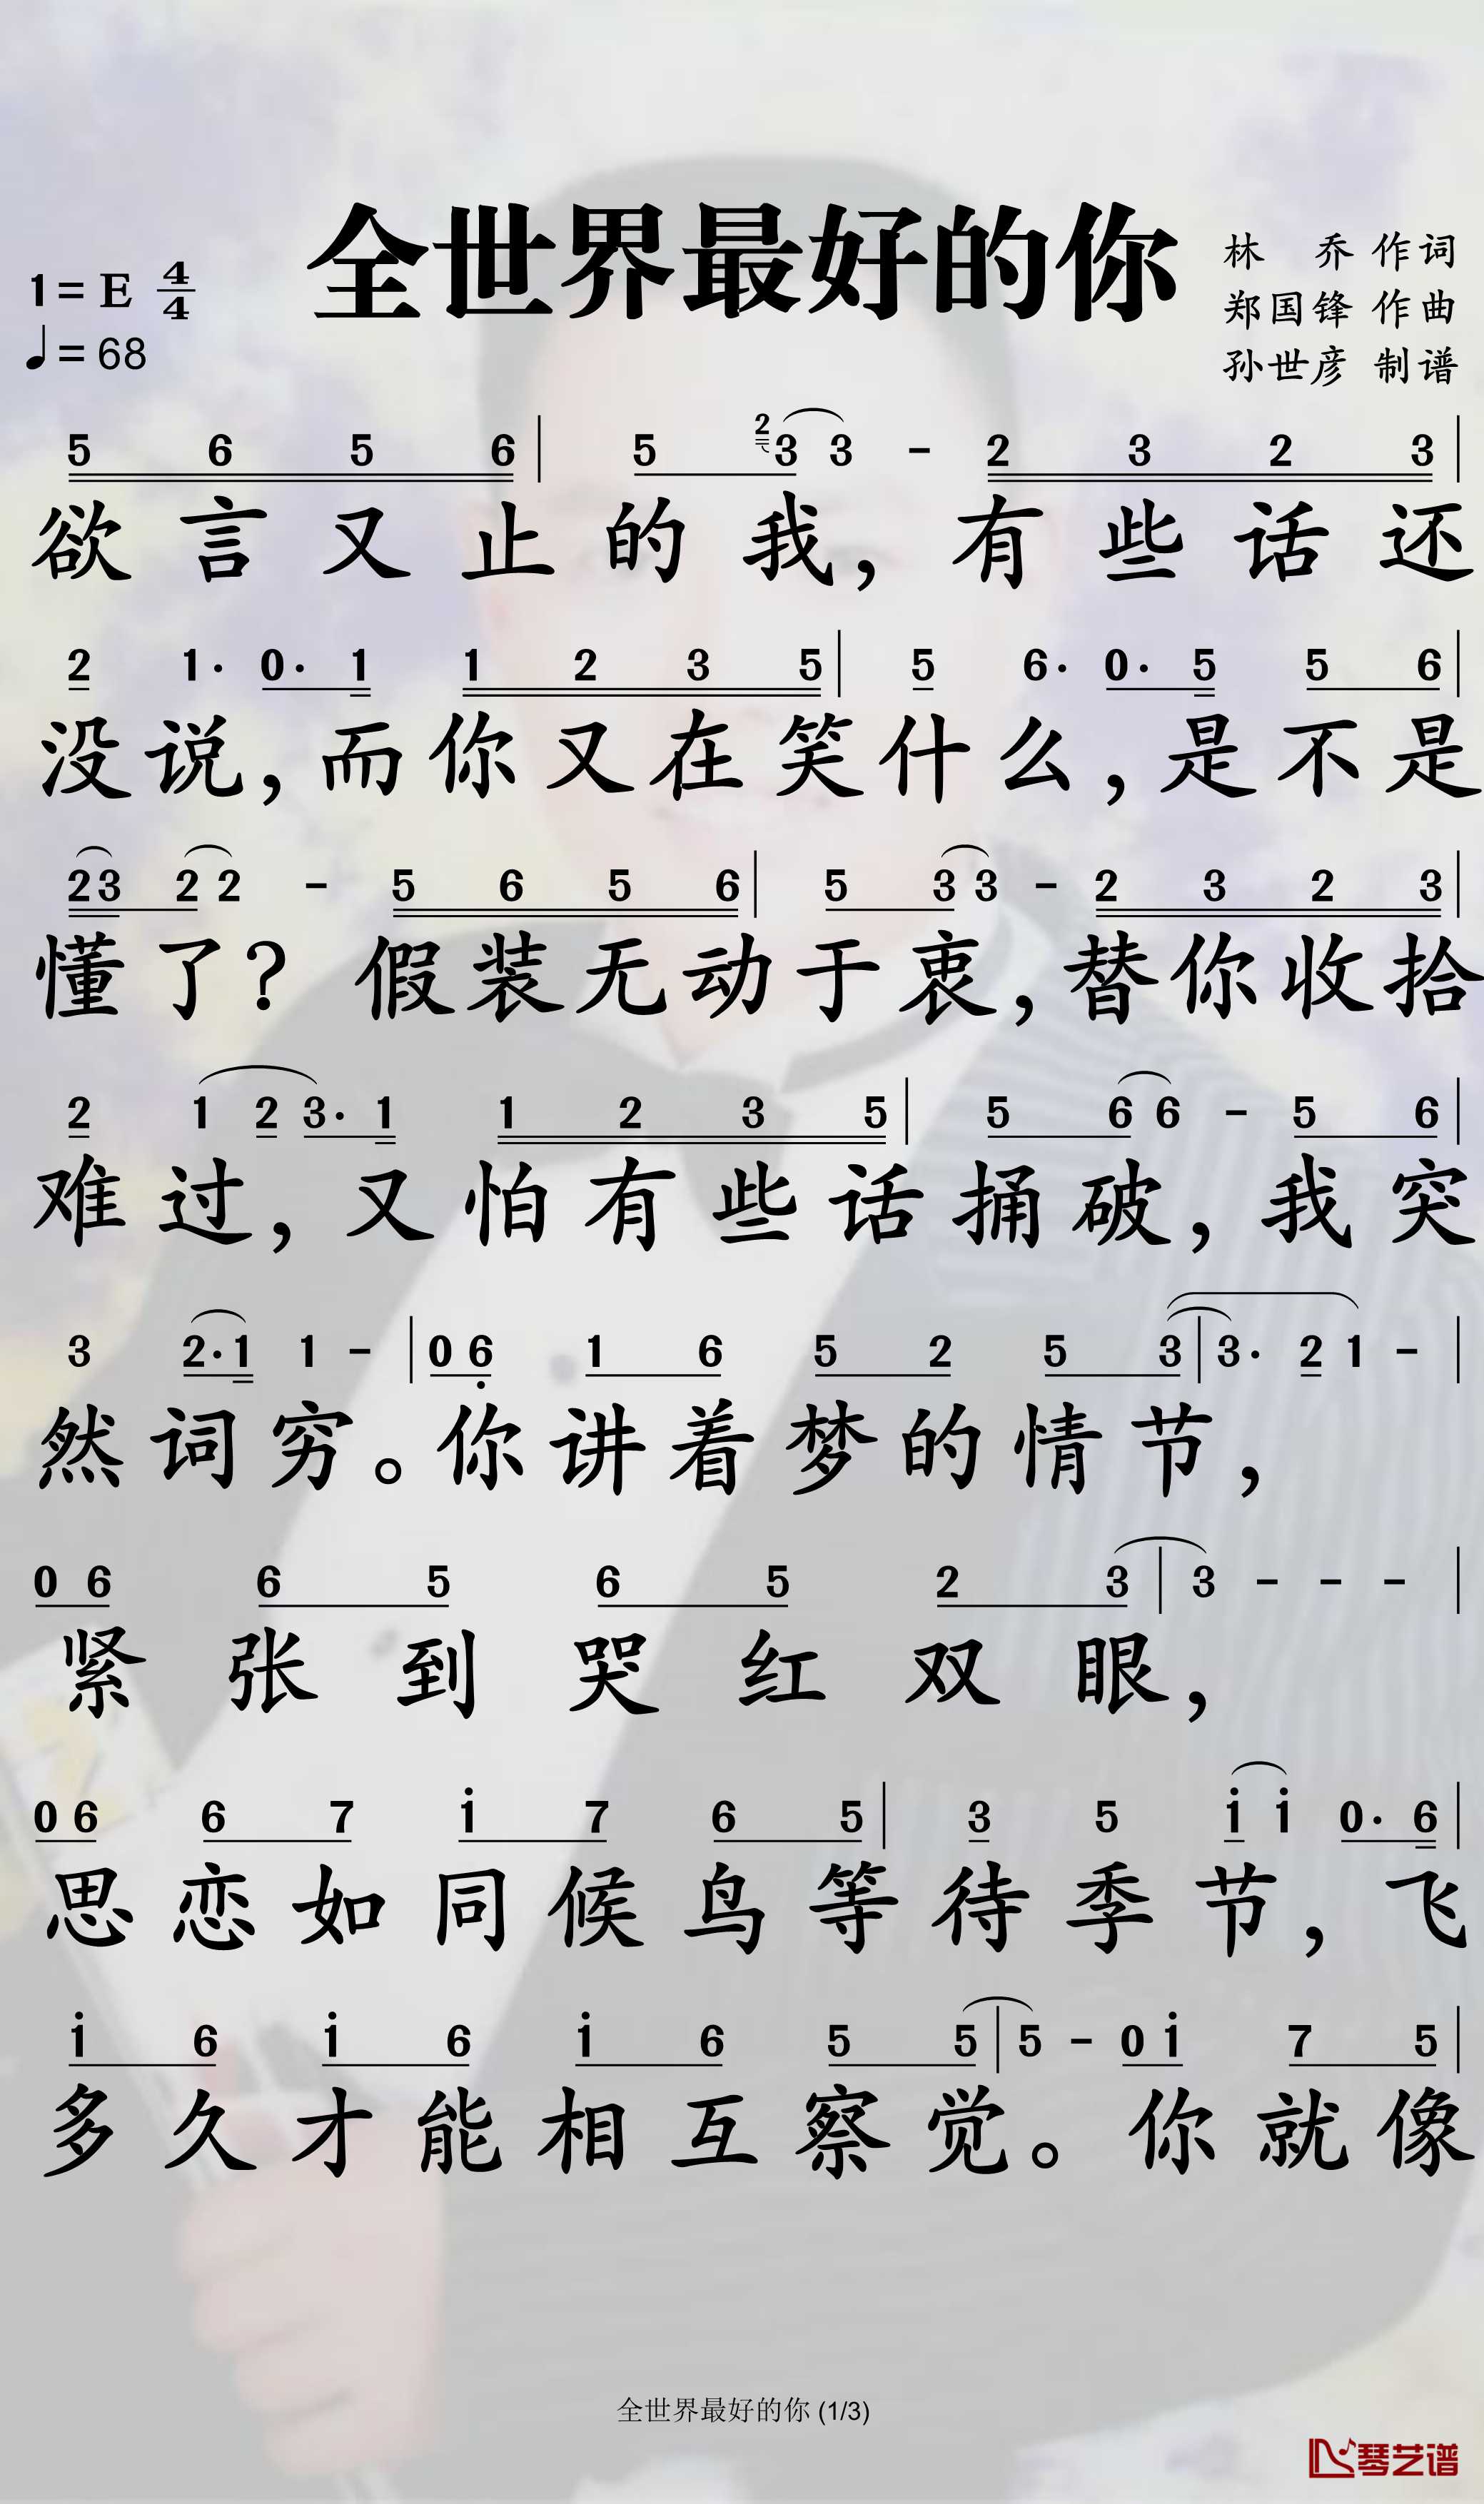 全世界最好的你
1=E 4/4
♩=68
林 乔 作词
郑国锋 作曲
孙世彦 制谱
5 6 5 6 | 5 2 3 3 - 2 3 2 3 |
欲言又止的我，有些话还
2 1· 0· 1 1 2 3 5 | 5 6· 0· 5 5 6 |
没说，而你又在笑什么，是不是
2 3 2 2 - 5 6 5 6 | 5 3 3 - 2 3 2 3 |
懂了？假装无动于衷，替你收拾
2 1 2 3· 1 1 2 3 5 | 5 6 6 - 5 6 |
难过，又怕有些话捅破，我突
3 2· 1 1 - | 0 6̣ 1 6 5 2 5 3 | 3· 2 1 - |
然词穷。你讲着梦的情节，
0 6 6 5 6 5 2 3 | 3 - - - |
紧张到哭红双眼，
0 6 6 7 i 7 6 5 | 3 5 i i 0· 6 |
思恋如同候鸟等待季节，飞
i 6 i 6 i 6 5 5 | 5 - 0 i 7 5 |
多久才能相互察觉。你就像
全世界最好的你 (1/3)
琴艺谱